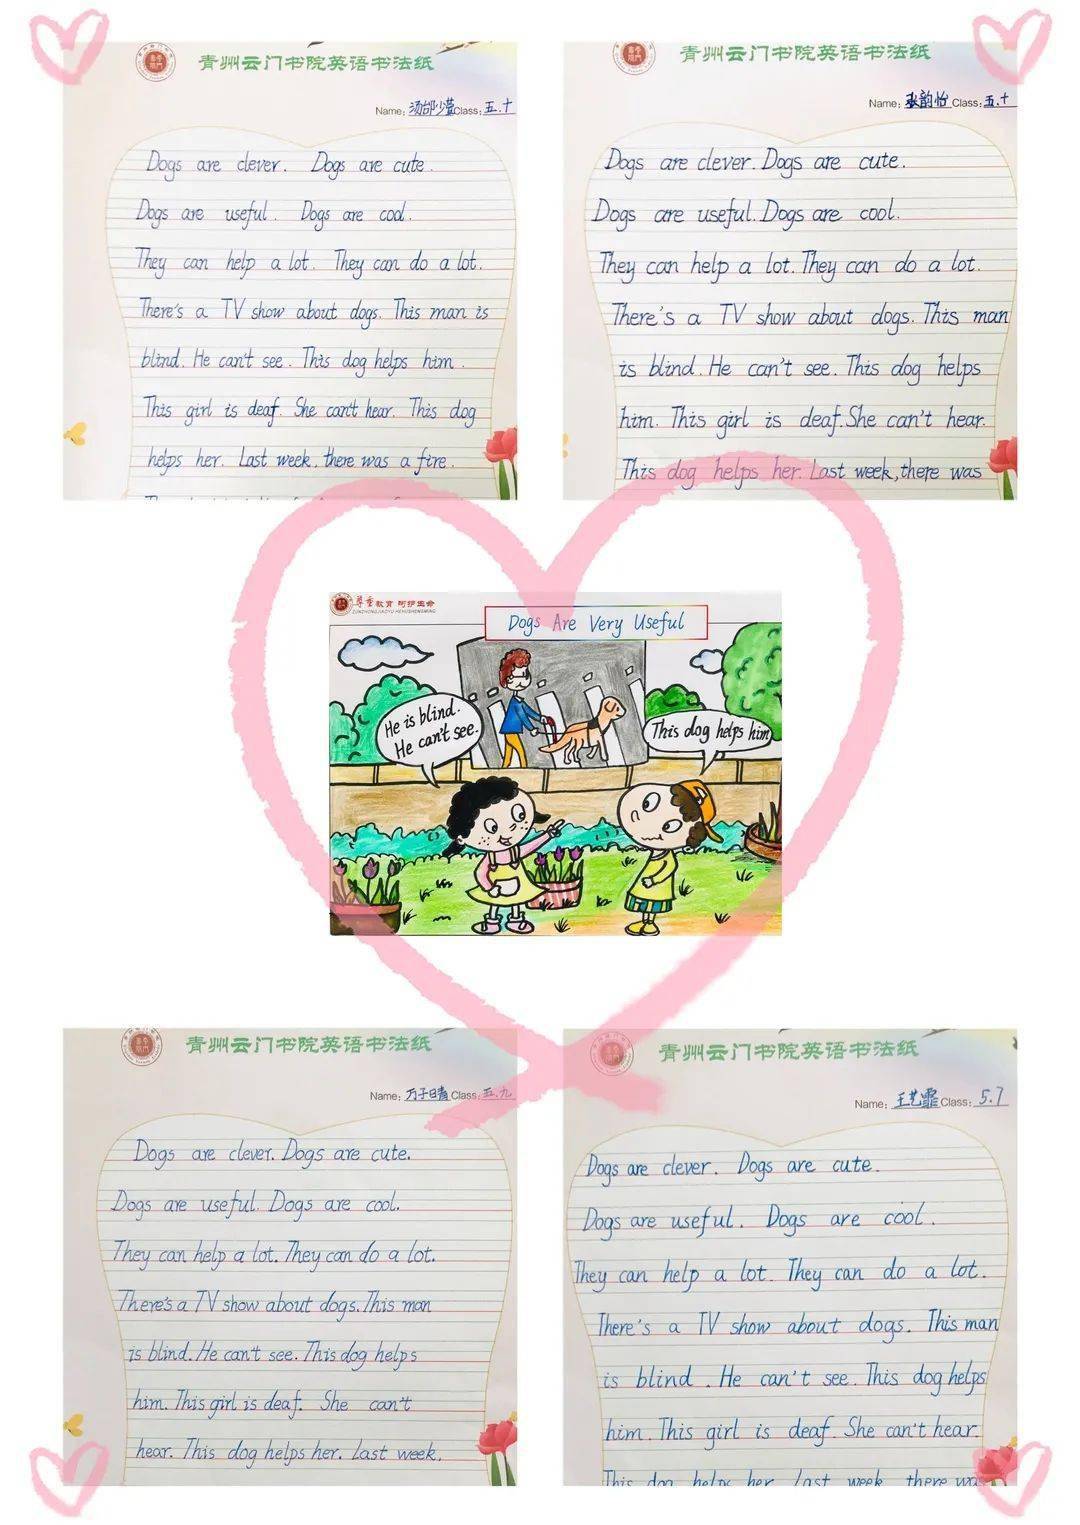 青州云门书院英语书法纸
Name: 汤邰少萱 Class: 五.十
Dogs are clever. Dogs are cute.
Dogs are useful. Dogs are cool.
They can help a lot. They can do a lot.
There's a TV show about dogs. This man is
blind. He can't see. This dog helps him.
This girl is deaf. She can't hear. This dog
helps her. Last week, there was a fire.
青州云门书院英语书法纸
Name: 张韵怡 Class: 五.十
Dogs are clever. Dogs are cute.
Dogs are useful. Dogs are cool.
They can help a lot. They can do a lot.
There's a TV show about dogs. This man
is blind. He can't see. This dog helps
him. This girl is deaf. She can't hear.
This dog helps her. Last week, there was
尊重教育 呵护生命
ZUNZHONGJIAOYU HEHUSHENGMING
Dogs Are Very Useful
He is blind.
He can't see.
This dog helps him
青州云门书院英语书法纸
Name: 万子晴 Class: 五.九
Dogs are clever. Dogs are cute.
Dogs are useful. Dogs are cool.
They can help a lot. They can do a lot.
There's a TV show about dogs. This man
is blind. He can't see. This dog helps
him. This girl is deaf. She can't
hear. This dog helps her. Last week,
青州云门书院英语书法纸
Name: 王艺霏 Class: 5.7
Dogs are clever. Dogs are cute.
Dogs are useful. Dogs are cool.
They can help a lot. They can do a lot.
There's a TV show about dogs. This man
is blind. He can't see. This dog helps
him. This girl is deaf. She can't hear.
This dog helps her. Last week, there was